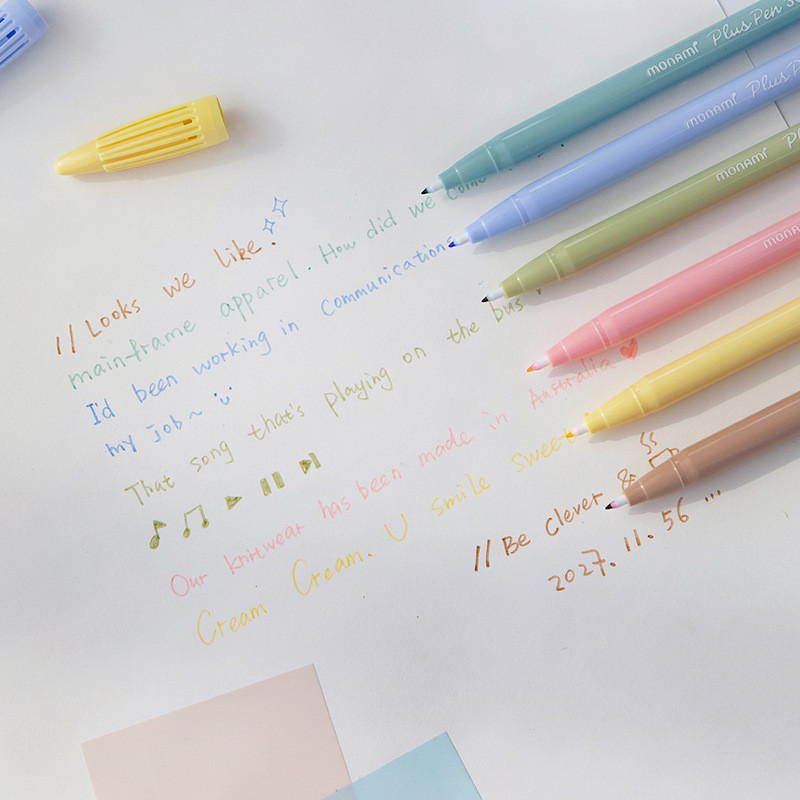 monami Plus Pen
monami Plus P
monami Pl
monami
// Looks we like.
mainframe apparel. How did we come
I'd been working in communications
my job~
That song that's playing on the bus
Our knitwear has been made in Australia
Cream Cream. U smile sweet
// Be clever &
2027.11.56 ...